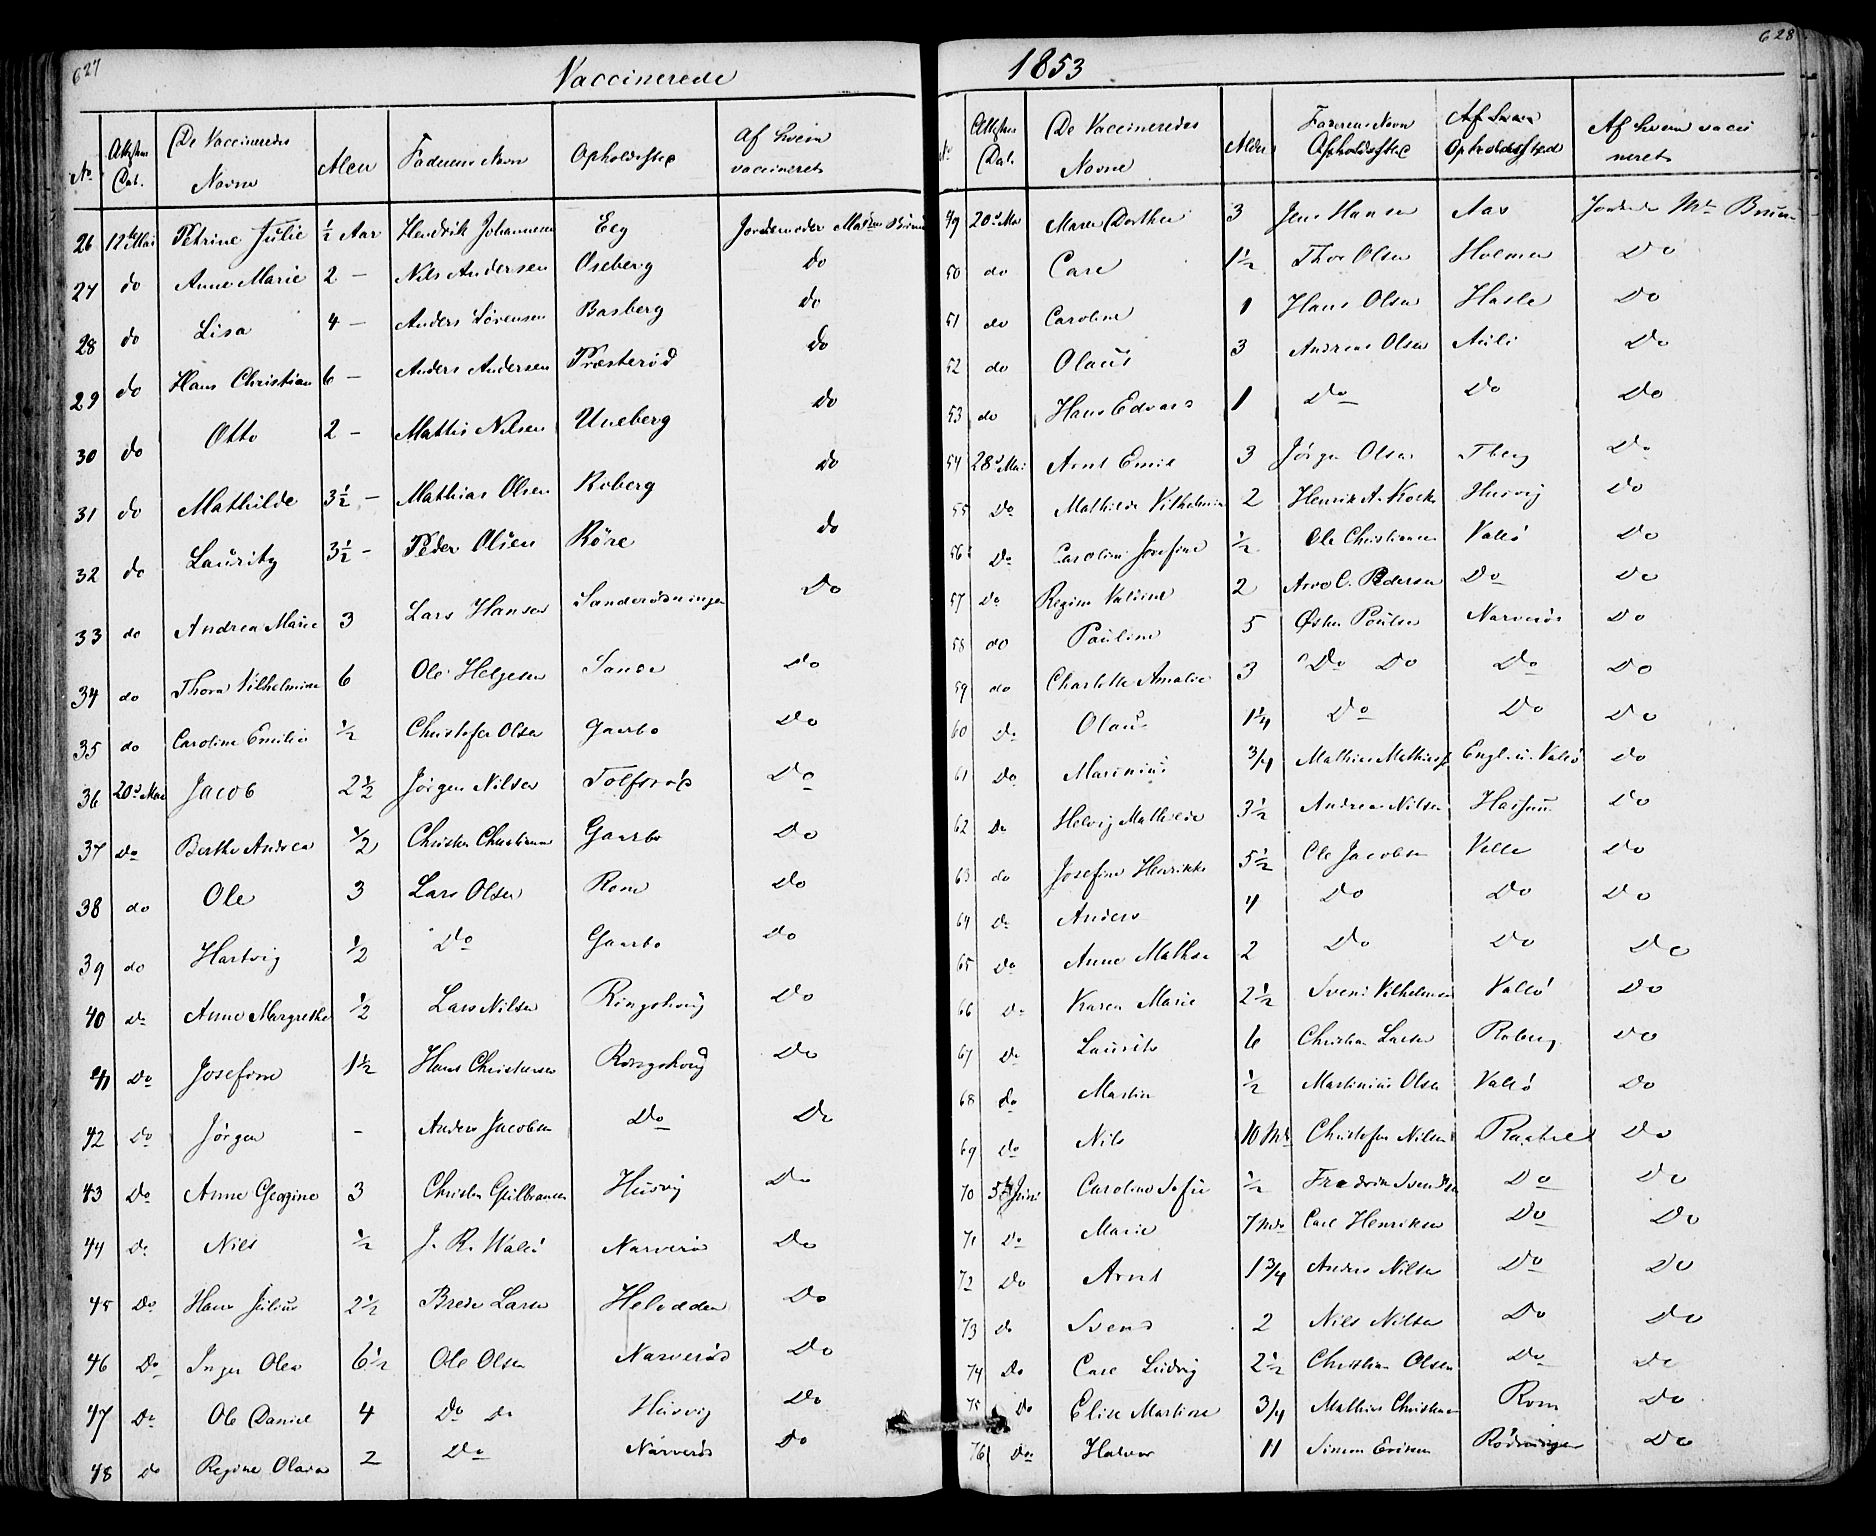 627
Vaccinerede
No Attestens Dat. De Vaccineredes Navne Alder Faderens Navn Opholdssted Af hvem vaccineret
26 12te Mai Petrine Julie ½ Aar Hendrik Johannesen Eeg Jordemoder Mad Bruun
27 do Anne Marie 2 — Nils Andersen Oseberg do
28 do Lisa 4 — Anders Sørensen Basberg do
29 do Hans Christian 6 — Anders Andersen Præsterød do
30 do Otto 2 — Mathis Nilsen Uneberg do
31 do Mathilde 3½ — Mathias Olsen Roberg do
32 do Lauritz 3½ — Peder Olsen Röre do
33 do Andrea Marie 3 Lars Hansen Sanderödningen Do
34 do Thora Vilhelmine 6 Ole Helgesen Sande Do
35 do Caroline Emilie ½ Christofer Olsen Gaarbo Do
36 20d Mai Jacob 2½ Jörgen Nilsen Tolfsröd Do
37 Do Berthe Andrea ½ Christen Christiansen Gaarbo Do
38 do Ole 3 Lars Olsen Rom Do
39 do Hartvig ½ Do Gaarbo Do
40 Do Anne Margrethe ½ Lars Nilsen Ringshoug Do
41 Do Josefine 1½ Hans Christensen Ringshoug Do
42 Do Jörgen - Anders Jacobsen Do Do
43 Do Anne Georgine 3 Christen Gulbransen Husvig Do
44 Do Nils ½ J. R. Wallö Narverö Do
45 Do Hans Julius 2½ Brede Larsen Do
46 Do Inger Olea 6½ Ole Olsen Narveröd Do
47 Do Ole Daniel 4 Do Do Husvig Do
48 Do Regine Olava 2 Do Narveröd Do
1853
628
No Attestens Dat. De Vaccineredes Navne Alder Faderens Navn Opholdssted Af hvem Opholdssted Af hvem vacci neret
49 20d Mai Maren Dorthea 3 Jens Hansen Aas Jordm Md Bruun
50 do Carl 1½ Thor Olsen Holmen Do
51 do Caroline 1 Hans Olsen Hasle Do
52 do Olaus 3 Andreas Olsen Auli Do
53 do Hans Edvard 1 Do Do Do
54 28d Mai Arnt Emil 3 Jörgen Olsen Do
55 Do Mathilde Vilhelmine 2 Henrik A. Husvig Do
56 Do Caroline Josefine ½ Ole Christiansen Vallö Do
57 Do Regine 2 C. Pedersen Do Do
58 do Pauline 5 Östen Poulsen Narveröd Do
59 do Charlotte Amalie 3 Do Do Do Do
60 Do Olaus 1¼ Do Do Do
61 Do Marinius ¾ Mathias Mathias Vallö Do
62 Do Helvig Mathilde 3½ Andreas Nilsen Do
63 do Josefine Henrikke 5½ Ole Jacobsen Do
64 Do Anders 4 Do Do Do
65 Do Anne Mathea 2 Do Do Do
66 Do Karen Marie 2½ Svend Vilhelmsen Vallö Do
67 Do Laurits 6 Christian Larsen Roberg Do
68 do Martin ½ Martinius Olsen Vallö Do
69 Do Nils 10 Md Christofer Nilsen Do
70 5te Juni Caroline Sofie ½ Fredrik Svendsen Do Do
71 Do Marie 7 Md Carl Henriksen Do Do
72 Do Arnt 1¾ Anders Nilsen Do Do
73 do Svend 2 Nils Nilsen Do Do
74 Do Carl Ludvig 2½ Christian Olsen Do Do
75 Do Elise Martine ¾ Mathias Christensen Rom Do
76 Do Halvor 11 Simon Rödningen Do